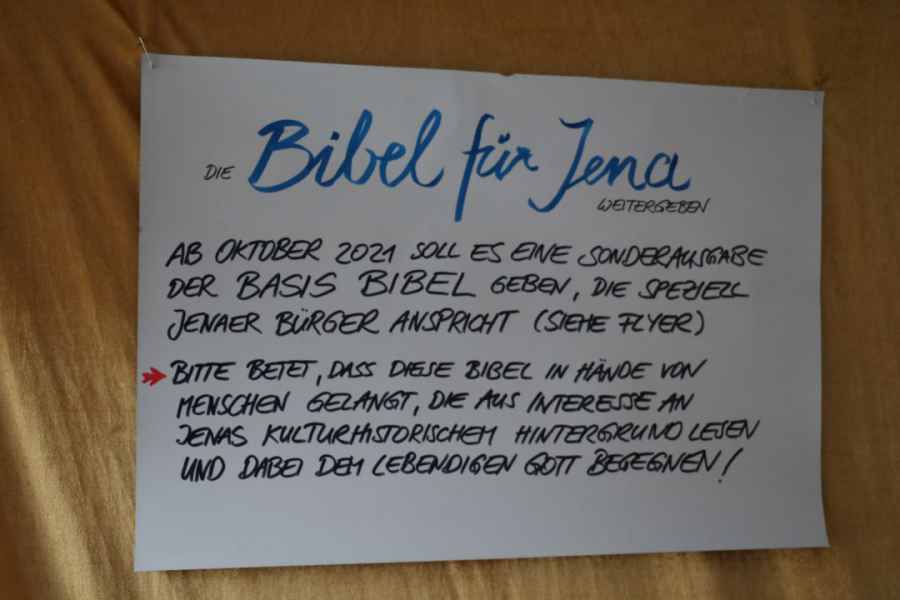 DIE Bibel für Jena
WEITERGEBEN
AB OKTOBER 2021 SOLL ES EINE SONDERAUSGABE
DER BASIS BIBEL GEBEN, DIE SPEZIELL
JENAER BÜRGER ANSPRICHT (SIEHE FLYER)
BITTE BETET, DASS DIESE BIBEL IN HÄNDE VON
MENSCHEN GELANGT, DIE AUS INTERESSE AN
JENAS KULTURHISTORISCHEM HINTERGRUND LESEN
UND DABEI DEM LEBENDIGEN GOTT BEGEGNEN!